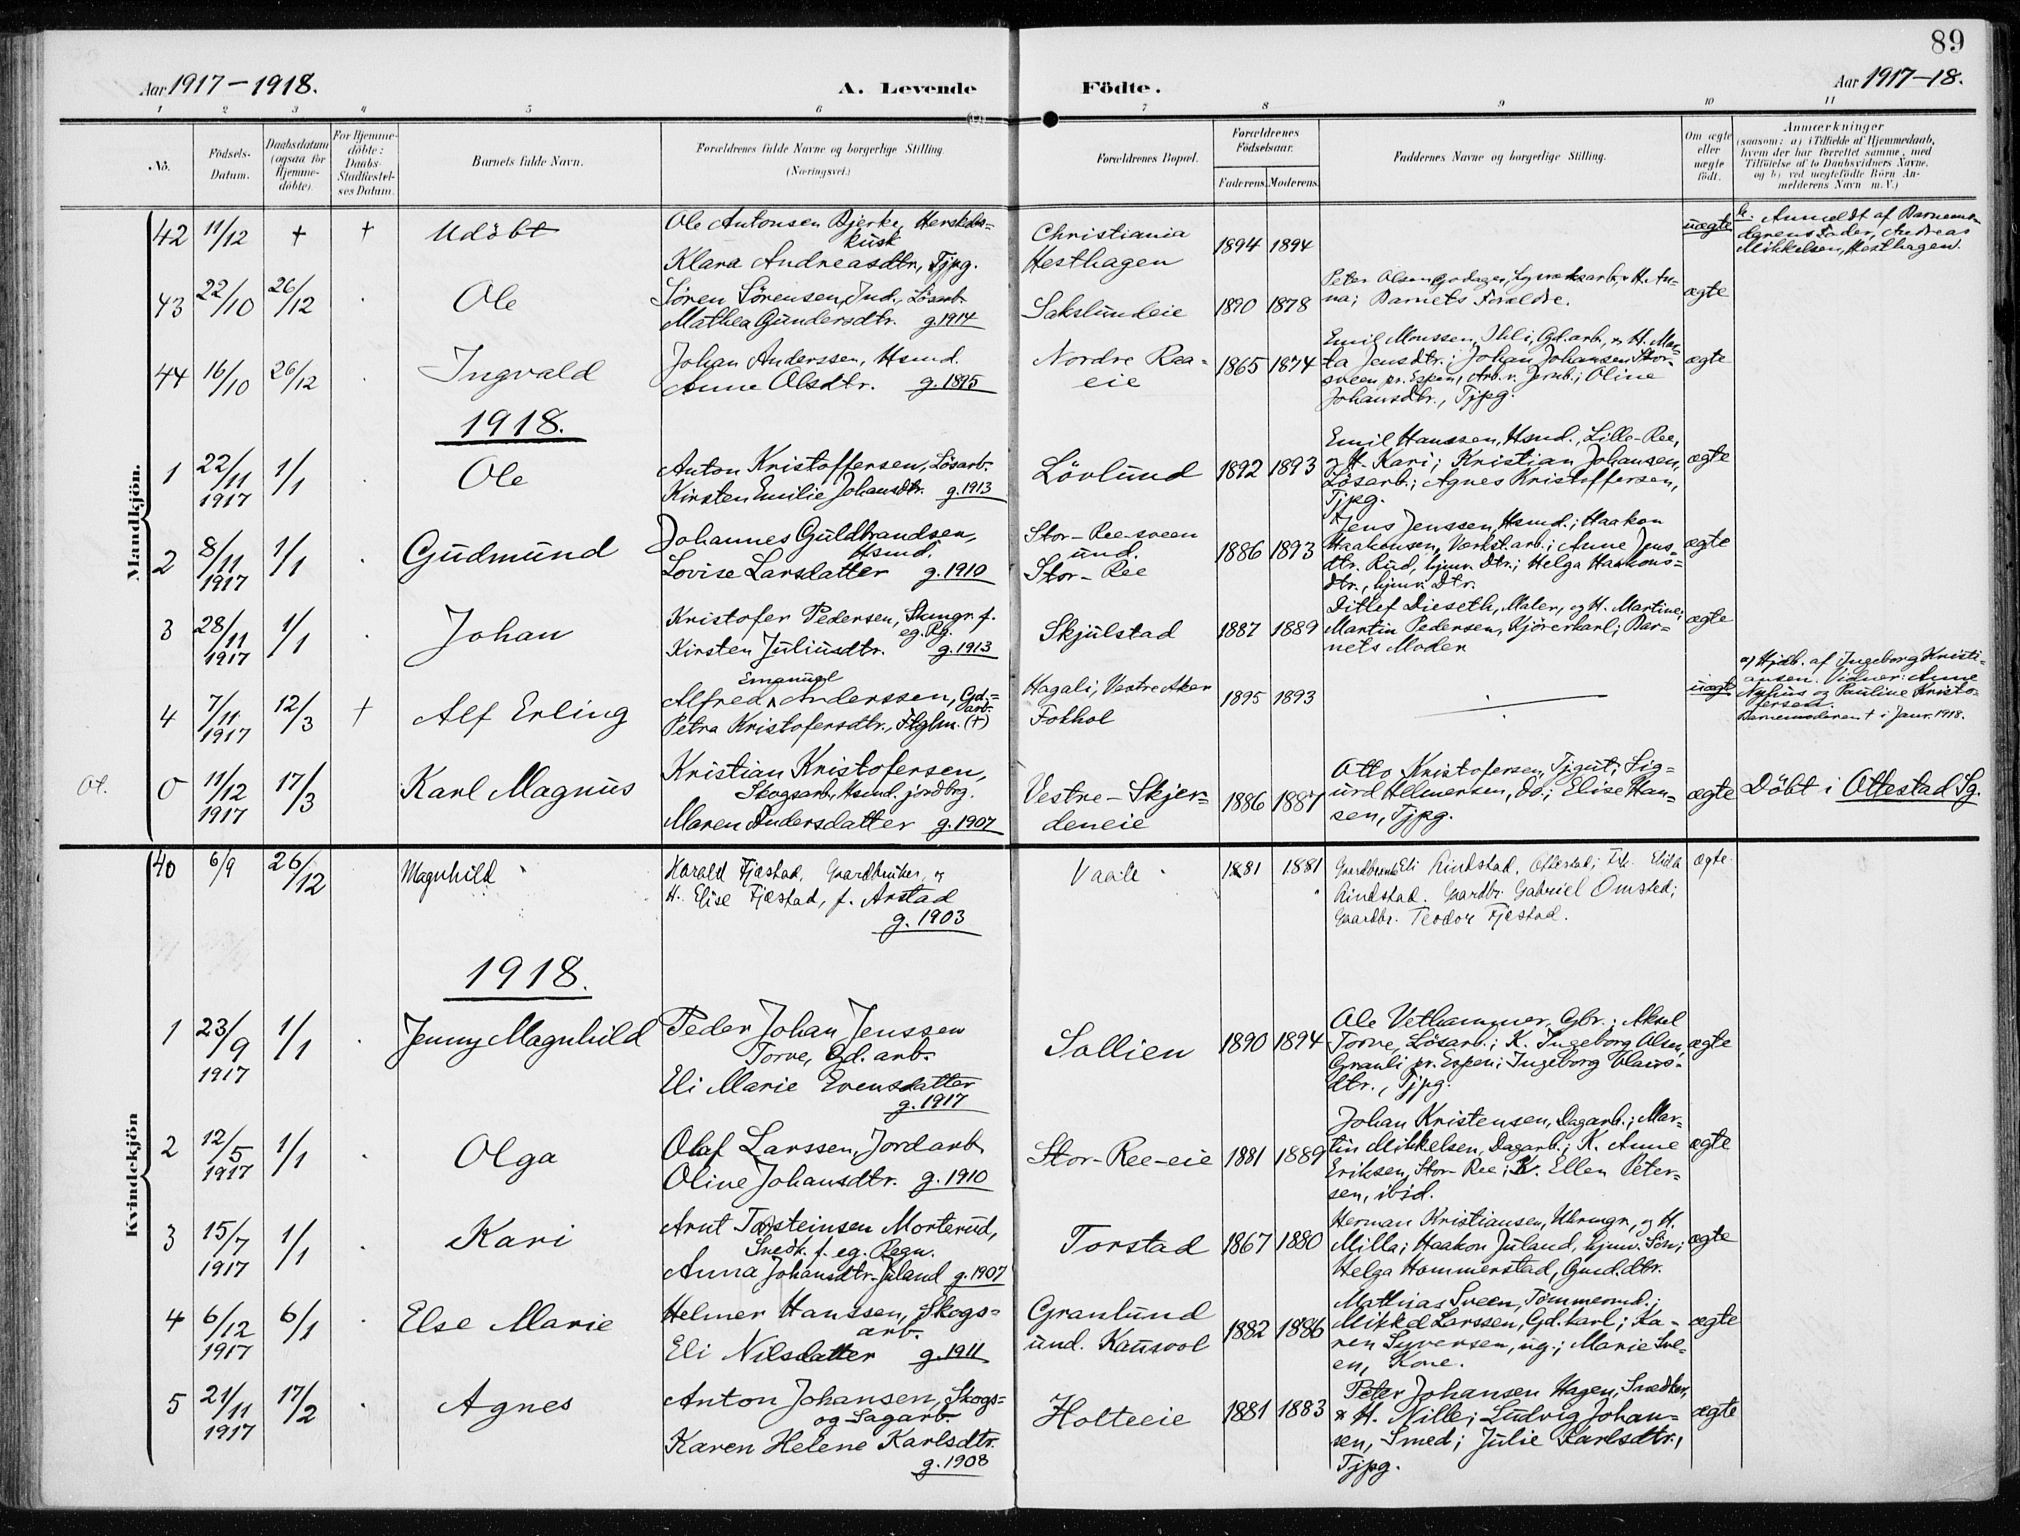 89
Aar 1917-1918.
A. Levende Födte.
Aar 1917-18.
1 2 3 4 5 6 7 8 9 10 11
No.
Födsels-Datum.
Daabsdatum (ogsaa for Hjemme-döbte).
For Hjemme-döbte: Daabs-Stadfæstel-ses Datum.
Barnets fulde Navn.
Forældrenes fulde Navne og borgerlige Stilling.
(Næringsvei.)
Forældrenes Bopæl.
Forældrenes Födselsaar.
Faderens. Moderens.
Faddernes Navne og borgerlige Stilling.
Om ægte eller uægte födt.
Anmærkninger
(saasom: a) i Tilfælde af Hjemmedaab,
hvem der har forrettet samme, med
Tilföielse af to Daabsvidners Navne,
og b) ved uægtefödte Börn An-
melderens Navn m. V.)
Mandkjön.
42 11/12 † † Udöbt
Ole Antonsen Bjerke, Herskabs-
kusk
Klara Andreasdtr, Tjpg.
Christiania
Hesthagen
1894 1894
uægte
b. Anmeldt af Barnemo-
derens Fader, Andreas
Mikkelsen, Hesthagen.
43 22/10 26/12 Ole
Sören Sörensen, Ind., Lösarb.
Mathea Gundersdtr. g. 1914
Sakslundeie
1890 1878
Peter Olsen Godager, Sagverksarb. & H. An-
na; Barnets Forældre.
ægte
44 16/10 26/12 Ingvald
Johan Anderssen, Hsmd.
Anne Olsdtr. g. 1895
Nordre Raa-
eie
1865 1874
Emil Monssen, Ihle, Gd.arb. & H. Mar-
ta Jensdtr.; Johan Johansen Stor-
sveen pr. Espen, Arb. v. Jernb.; Oline
Johansdtr., Tjpg.
ægte
1918.
1 22/11 1917 1/1 Ole
Anton Kristoffersen, Lösarb.
Kirsten Emilie Johansdtr. g. 1913
Lövlund
1892 1893
Emil Hanssen, Hsmd., Lille-Ree,
og H. Kari; Kristian Johansen,
Lösarb.; Agnes Kristoffersen,
Tjpg.
ægte
2 8/11 1917 1/1 Gudmund
Johannes Guldbrandsen,
Hsmd.
Lovise Larsdatter g. 1910
Stor-Ree-sveen
und.
Stor-Ree
1886 1893
Jens Jenssen, Hsmd.; Haakon
Haakensen, Værkst.arb.; Anne Jens-
dtr. Rud, hjmv. Dtr.; Helga Haakons-
dtr., hjmv. Dtr.
ægte
3 28/11 1917 1/1 Johan
Kristofer Pedersen, Skmgr. f.
eg. Rg.
Kirsten Juliusdtr. g. 1913
Skjulstad
1887 1889
Ditlef Dieseth, Maler, og H. Martine;
Martin Pedersen, Kjörerkarl; Bar-
nets Moder
ægte
4 7/11 1917 12/3 † Alf Erling
Emanuel
Alfred Anderssen, Gd.-
arb.
Petra Kristofersdtr., (†)
Hagali, Vestre Aker
Fokhol
1895 1893
uægte
a) Hjdb. af Ingeborg Kristi-
ansen. Vidner: Anne
Nyhus og Pauline Kristo-
fersen.
Barnemoderen † i Janr. 1918.
Ot.
0 11/12 1917 17/3 Karl Magnus
Kristian Kristofersen,
Skogsarb., Hsmd. jordbrg.
Maren Andersdatter g. 1907
Vestre-Skjer-
deneie
1886 1887
Otto Kristofersen, Tjgut; Sig-
urd Helmersen, do.; Elise Han-
sen, Tjpg.
ægte
Döbt i Ottestad Sg.
Kvindekjön
40 6/9 26/12 Magnhild
Harald Fjæstad, Gaardbruker, og
H. Elise Fjæstad, f. Arstad
g. 1903
Vaale
1881 1881
Gaardbruker Eli Rindstad, Ottestad; Frk. Elida
Rindstad. Gaardbr. Gabriel Omsted;
Gaardbr. Teodor Fjæstad.
ægte
1918.
1 23/9 1917 1/1 Jenny Magnhild
Peder Johan Jenssen
Torve, Gd. arb.
Eli Marie Evensdatter
g. 1917
Sollien
1890 1894
Ole Vethammer, Gbr.; Aksel
Torve, Lösarb.; K. Ingeborg Olsen,
Granli pr. Espen; Ingeborg Olaus-
dtr., Tjpg.
ægte
2 12/5 1917 1/1 Olga
Olaf Larssen, Jordarb.
Oline Johansdtr. g. 1910
Stor-Ree-eie
1881 1889
Johan Kristensen, Dagarb.; Mar-
tin Mikkelsen, Dagarb.; K. Anne
Eriksen, Stor-Ree; K. Ellen Peter-
sen, ibid.
ægte
3 15/7 1917 1/1 Kari
Arnt Torsteinsen Morterud,
Snedk. f. eg. Regn.
Anna Johansdtr. Juland g. 1907
Torstad
1867 1880
Herman Kristiansen, Uhrmgr., og H.
Milla; Haakon Juland, hjmv. Sön;
Helga Hommerstad, Gmd.dtr.
ægte
4 6/12 1917 6/1 Else Marie
Helmer Hanssen, Skogs-
arb.
Eli Nilsdatter g. 1911
Granlund
und. Kausvol
1882 1886
Mathias Sveen, Tömmermd.;
Mikkel Larssen, Gd.karl; Ka-
ren Syversen, ug.; Marie Sve-
en, Kone.
ægte
5 21/11 1917 17/2 Agnes
Anton Johansen, Skogs-
og Sagarb.
Karen Helene Karlsdtr.
g. 1908
Holteeie
1881 1883
Peter Johansen Hagen, Snedker,
& H. Nille; Ludvig Johan-
sen, Smed; Julie Karlsdtr.,
Tjpg.
ægte